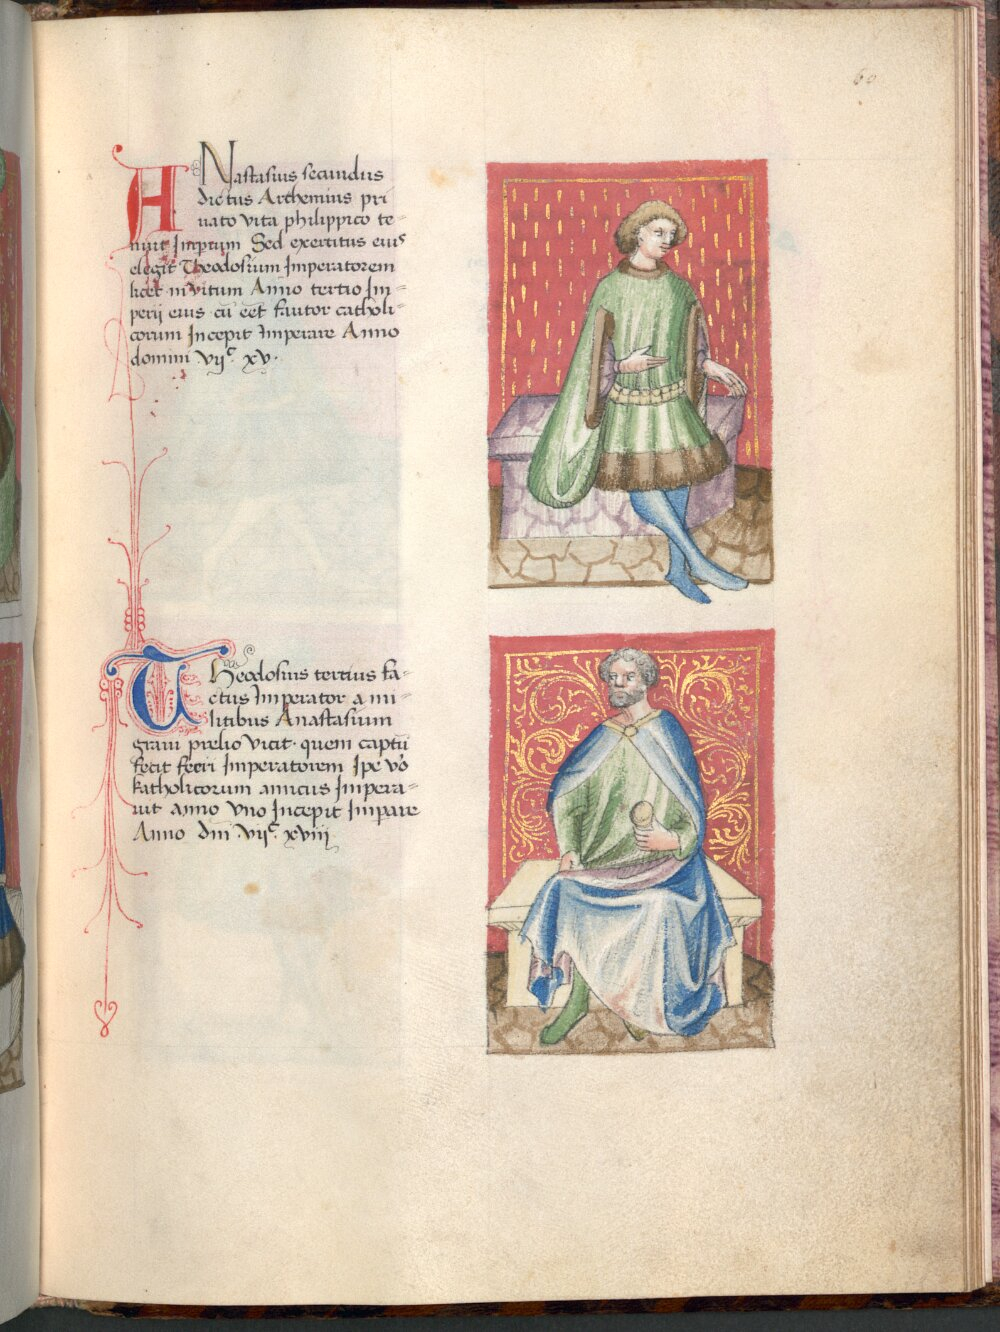 60
ANastasius secundus
dictus Arthemius pri
uato vita philippico te=
nuit Imperium Sed exertitus eius
elegit Theodosium Imperatorem
licet invitum Anno tertio Im=
perij eius cū eēt fautor catholi=
corum Incepit Imperare Anno
domini vijc. xv.
THeodosius tertius fa=
ctus Imperator a mi=
litibus Anastasium
graui prelio vicit. quem captū
fecit Imperatorem Ipe vo
katholicorum amicus Impera=
uit anno vno Incepit Impare
Anno dni vijc. xviij